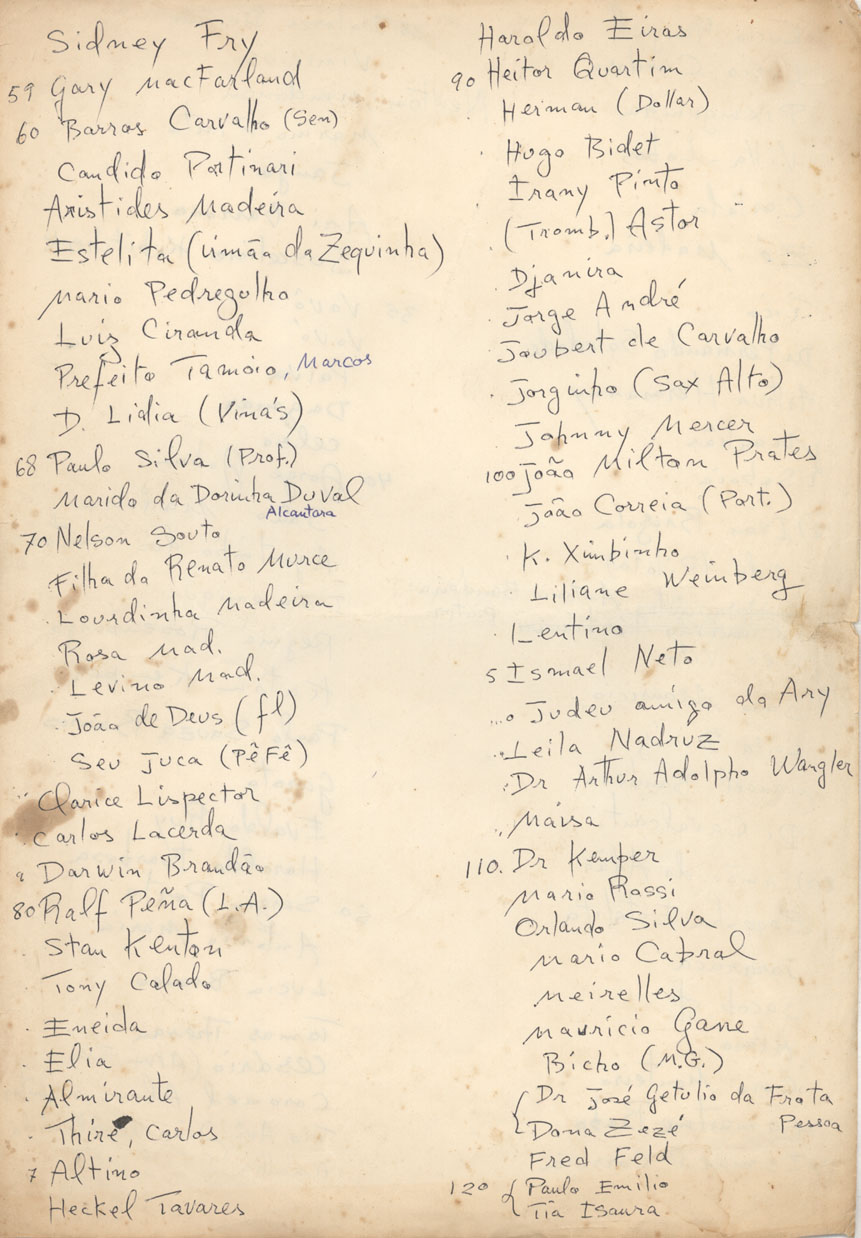 Sidney Fry
59 Gary MacFarland
60 Barros Carvalho (Sen)
Candido Portinari
Aristides Madeira
Estelita (irmão da Zequinha)
Mario Pedregulho
Luiz Ciranda
Prefeito Tamóio, Marcos
D. Lidia (Viná's)
68 Paulo Silva (Prof.)
Marido da Dorinha Duval
Alcantara
70 Nelson Souto
Filha do Renato Murce
Lourdinha Madeira
Rosa Mad.
Levino Mad.
João de Deus (fl)
Seu Juca (PêFê)
Clarice Lispector
Carlos Lacerda
9 Darwin Brandão
80 Ralf Peña (L.A.)
Stan Kenton
Tony Calado
Eneida
Elia
Almirante
Thiré, Carlos
7 Altino
Heckel Tavares
Haroldo Eiras
90 Heitor Quartim
Herman (Dollar)
Hugo Bidet
Irany Pinto
(Tromb.) Astor
Djanira
Jorge André
Joubert de Carvalho
Jorginho (Sax Alto)
Johnny Mercer
100 João Milton Prates
João Correia (Port.)
K. Ximbinho
Liliane Weinberg
Lentino
5 Ismael Neto
Judeu amigo do Ary
Leila Nadruz
Dr Arthur Adolpho Wangler
Maísa
110. Dr Kemper
Mario Rossi
Orlando Silva
Mario Cabral
Meirelles
Mauricio Gane
Bicho (M.G.)
Dr José Getulio da Frota
Pessoa
Dona Zezé
Fred Feld
120 Paulo Emilio
Tia Isaura